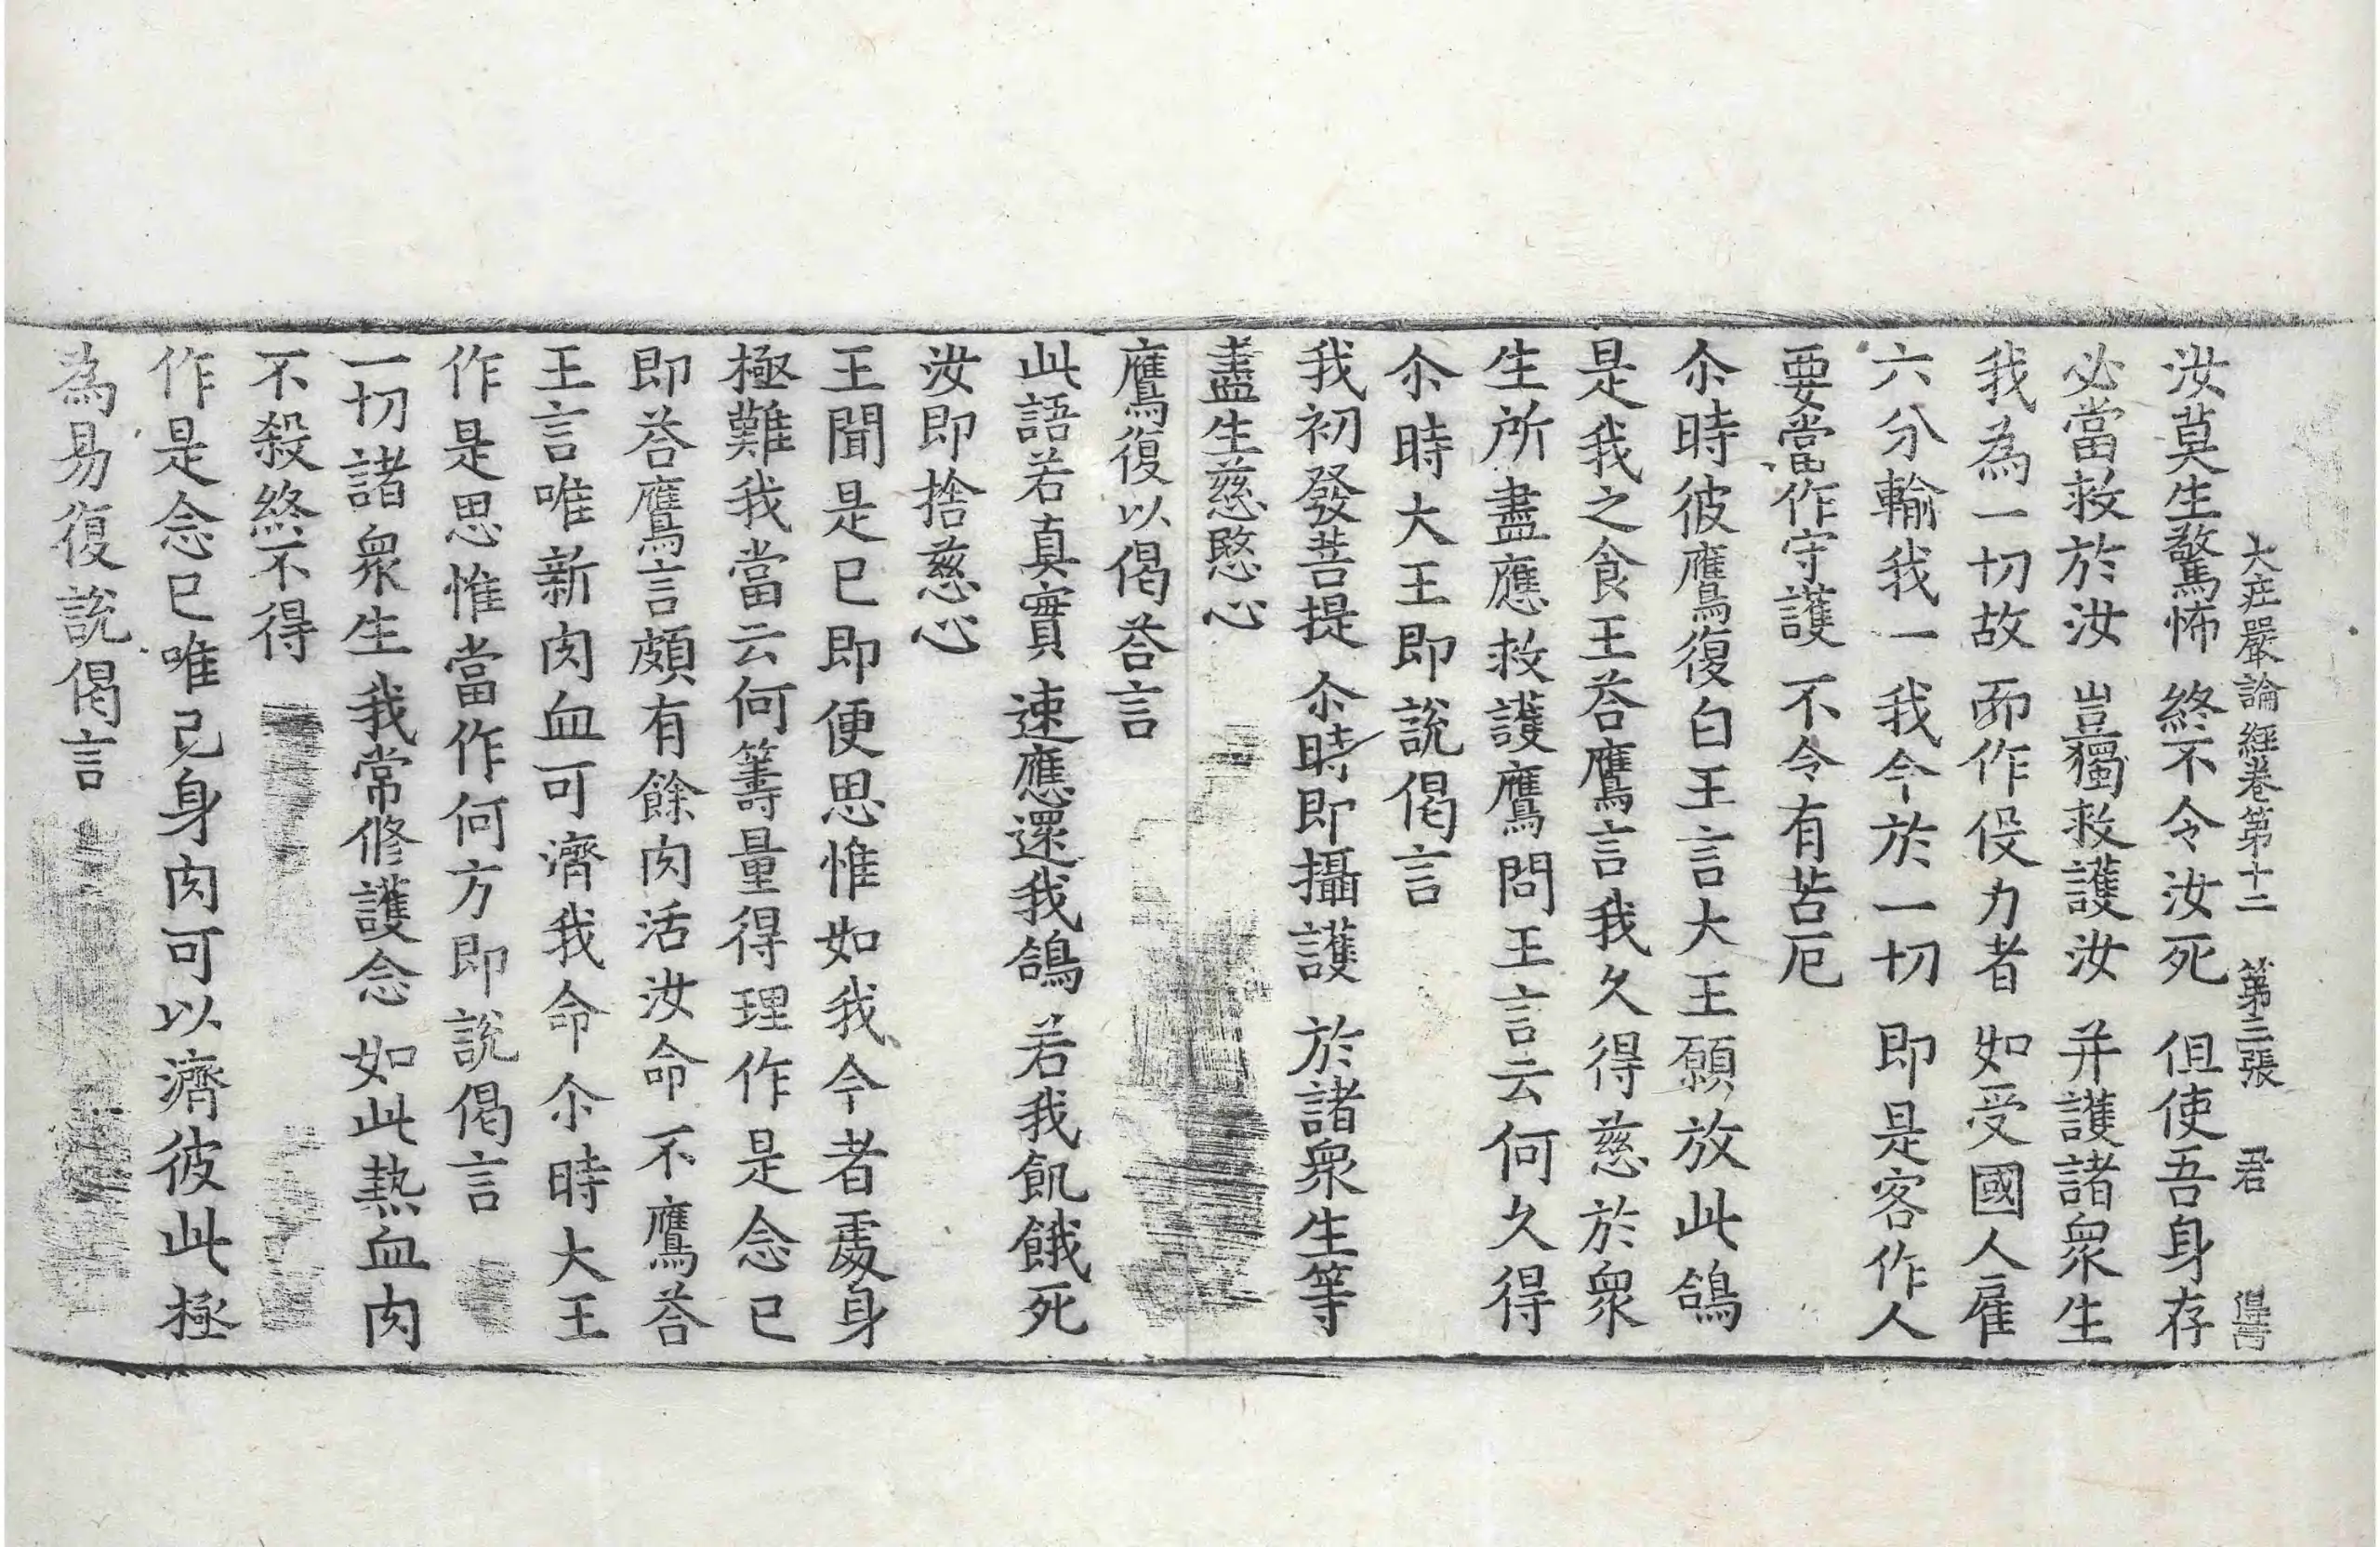 大庄嚴論經卷第十二　第三張　君
汝莫生驚怖　終不令汝死　但使吾身存
必當救於汝　豈獨救護汝　并護諸衆生
我為一切故　而作役力者　如受國人雇
六分輸我一　我今於一切　即是客作人
要當作守護　不令有苦厄
尒時彼鷹復白王言大王願放此鴿
是我之食王荅鷹言我久得慈於衆
生所盡應救護鷹問王言云何久得
尒時大王即說偈言
我初發菩提　尒時即攝護　於諸衆生等
盡生慈愍心
鷹復以偈荅言
此語若真實　速應還我鴿　若我飢餓死
汝即捨慈心
王聞是已即便思惟如我今者處身
極難我當云何籌量得理作是念已
即荅鷹言頗有餘肉活汝命不鷹荅
王言唯新肉血可濟我命尒時大王
作是思惟當作何方即說偈言
一切諸衆生　我常修護念　如此熱血肉
不殺終不得
作是念已唯己身肉可以濟彼此極
為易復說偈言